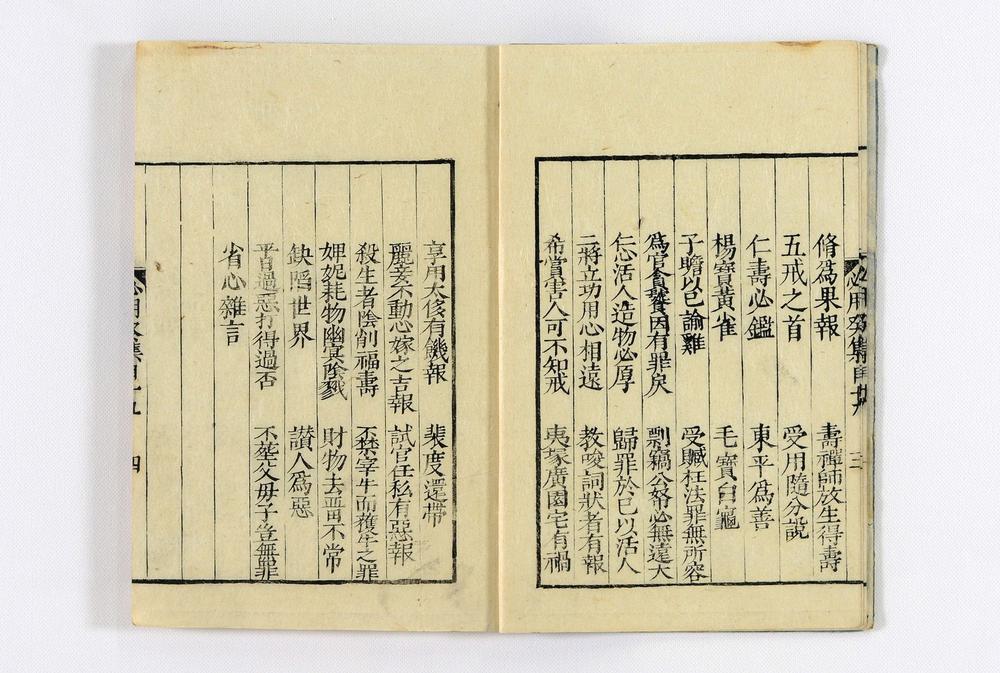 脩爲果報　壽禪師放生得壽
五戒之首　受用隨分說
仁壽必鑑　東平爲善
楊寶黃雀　毛寶白龜
子瞻以已諭雞　受贓枉法罪無所容
爲官貪饕因有罪戾　剽竊公帑必無遠大
仁心活人造物必厚　歸罪於已以活人
二將立功用心相遠　教唆詞狀者有報
希賞害人可不知戒　夷塚廣園宅有禍
三
享用太侈有饑報　裴度還帶
麗妾不動心嫁之吉報　試官任私有惡報
殺生者陰削福壽　不禁宰牛而獲牛之罪
婢妮耗物幽冥陰戮　財物去畱不常
缺陷世界　讃人爲惡
平日過惡打得過否　不塟父毋子豈無罪
省心雜言
四